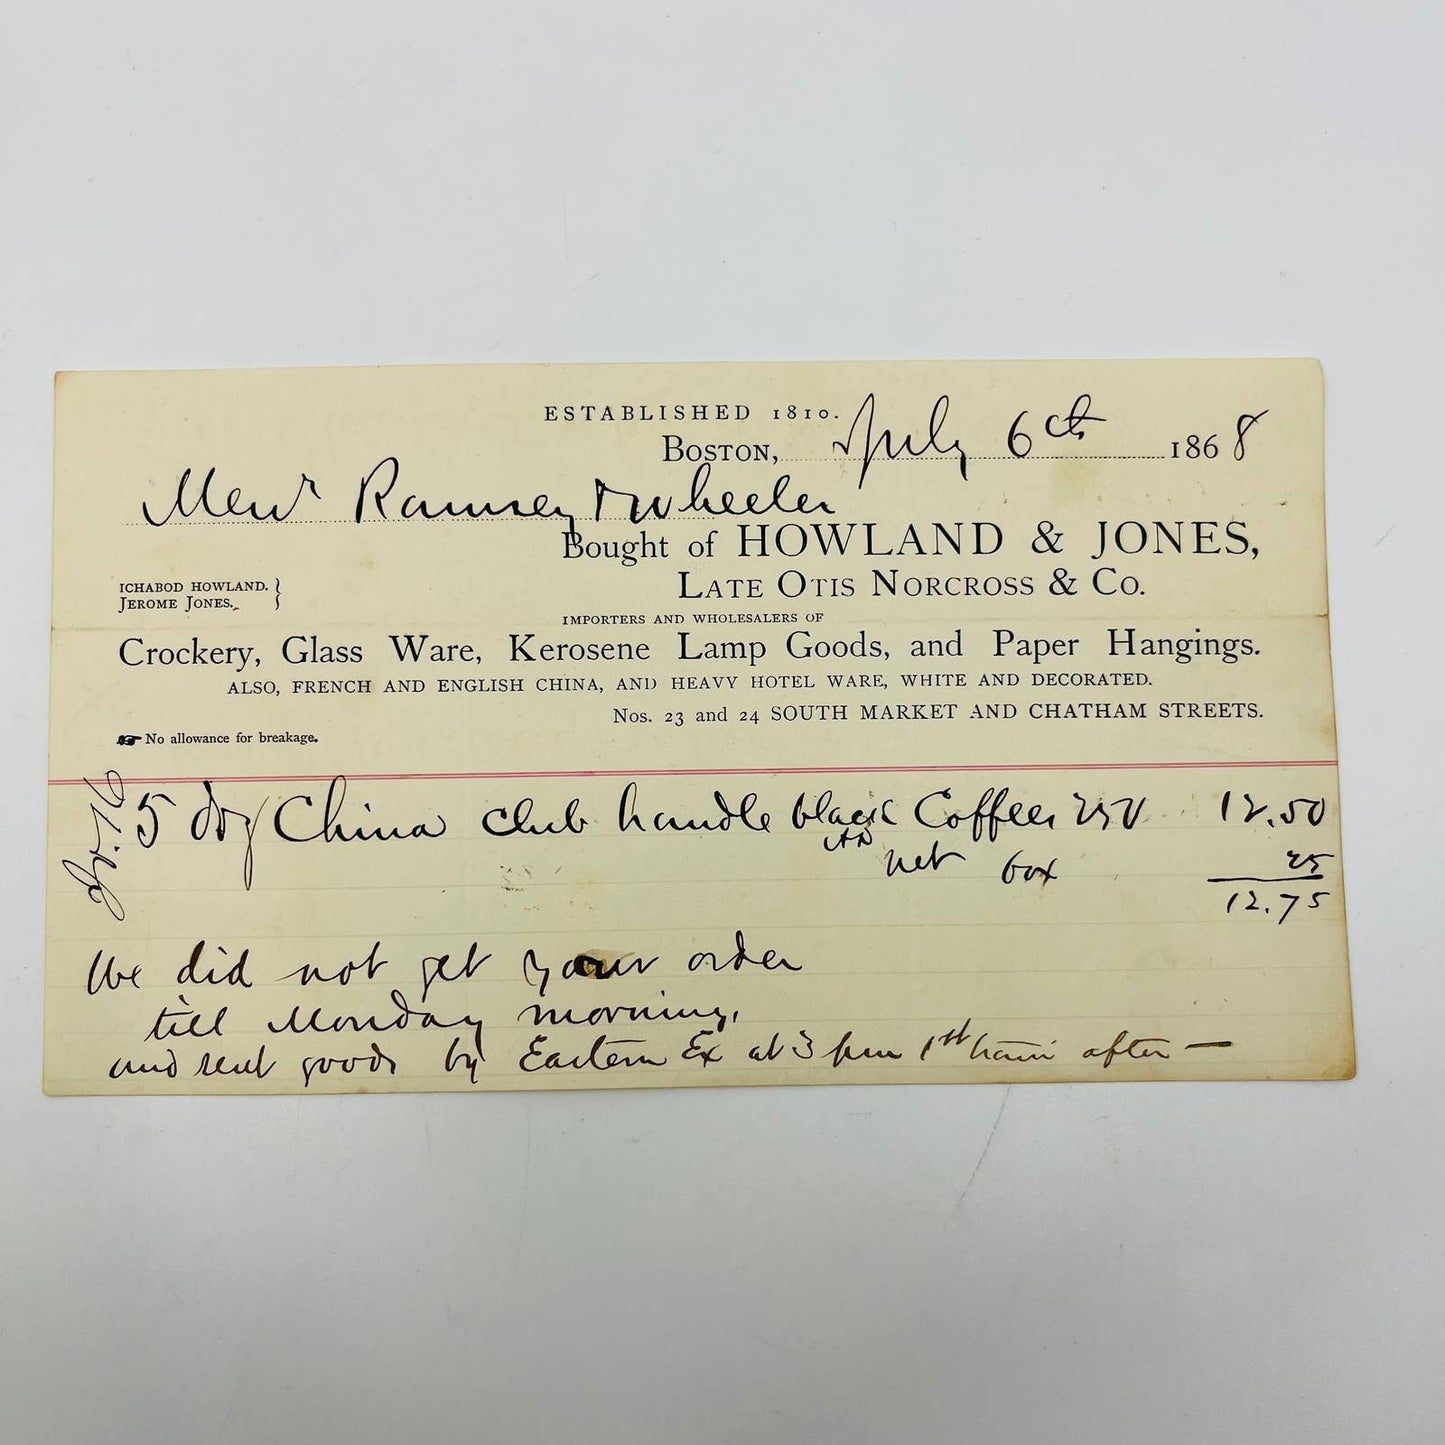 ESTABLISHED 1810.
BOSTON, July 6th 1868
Messrs Ramsey & Wheeler
Bought of HOWLAND & JONES,
LATE OTIS NORCROSS & CO.
ICHABOD HOWLAND. }
JEROME JONES. }
IMPORTERS AND WHOLESALERS OF
Crockery, Glass Ware, Kerosene Lamp Goods, and Paper Hangings.
ALSO, FRENCH AND ENGLISH CHINA, AND HEAVY HOTEL WARE, WHITE AND DECORATED.
Nos. 23 and 24 SOUTH MARKET AND CHATHAM STREETS.
☞ No allowance for breakage.
5 doz China club handle black Coffees 250 12.50
net box 25
12.75
We did not get your order
till Monday morning,
and sent goods by Eastern Ex at 3 pm 1st train after —